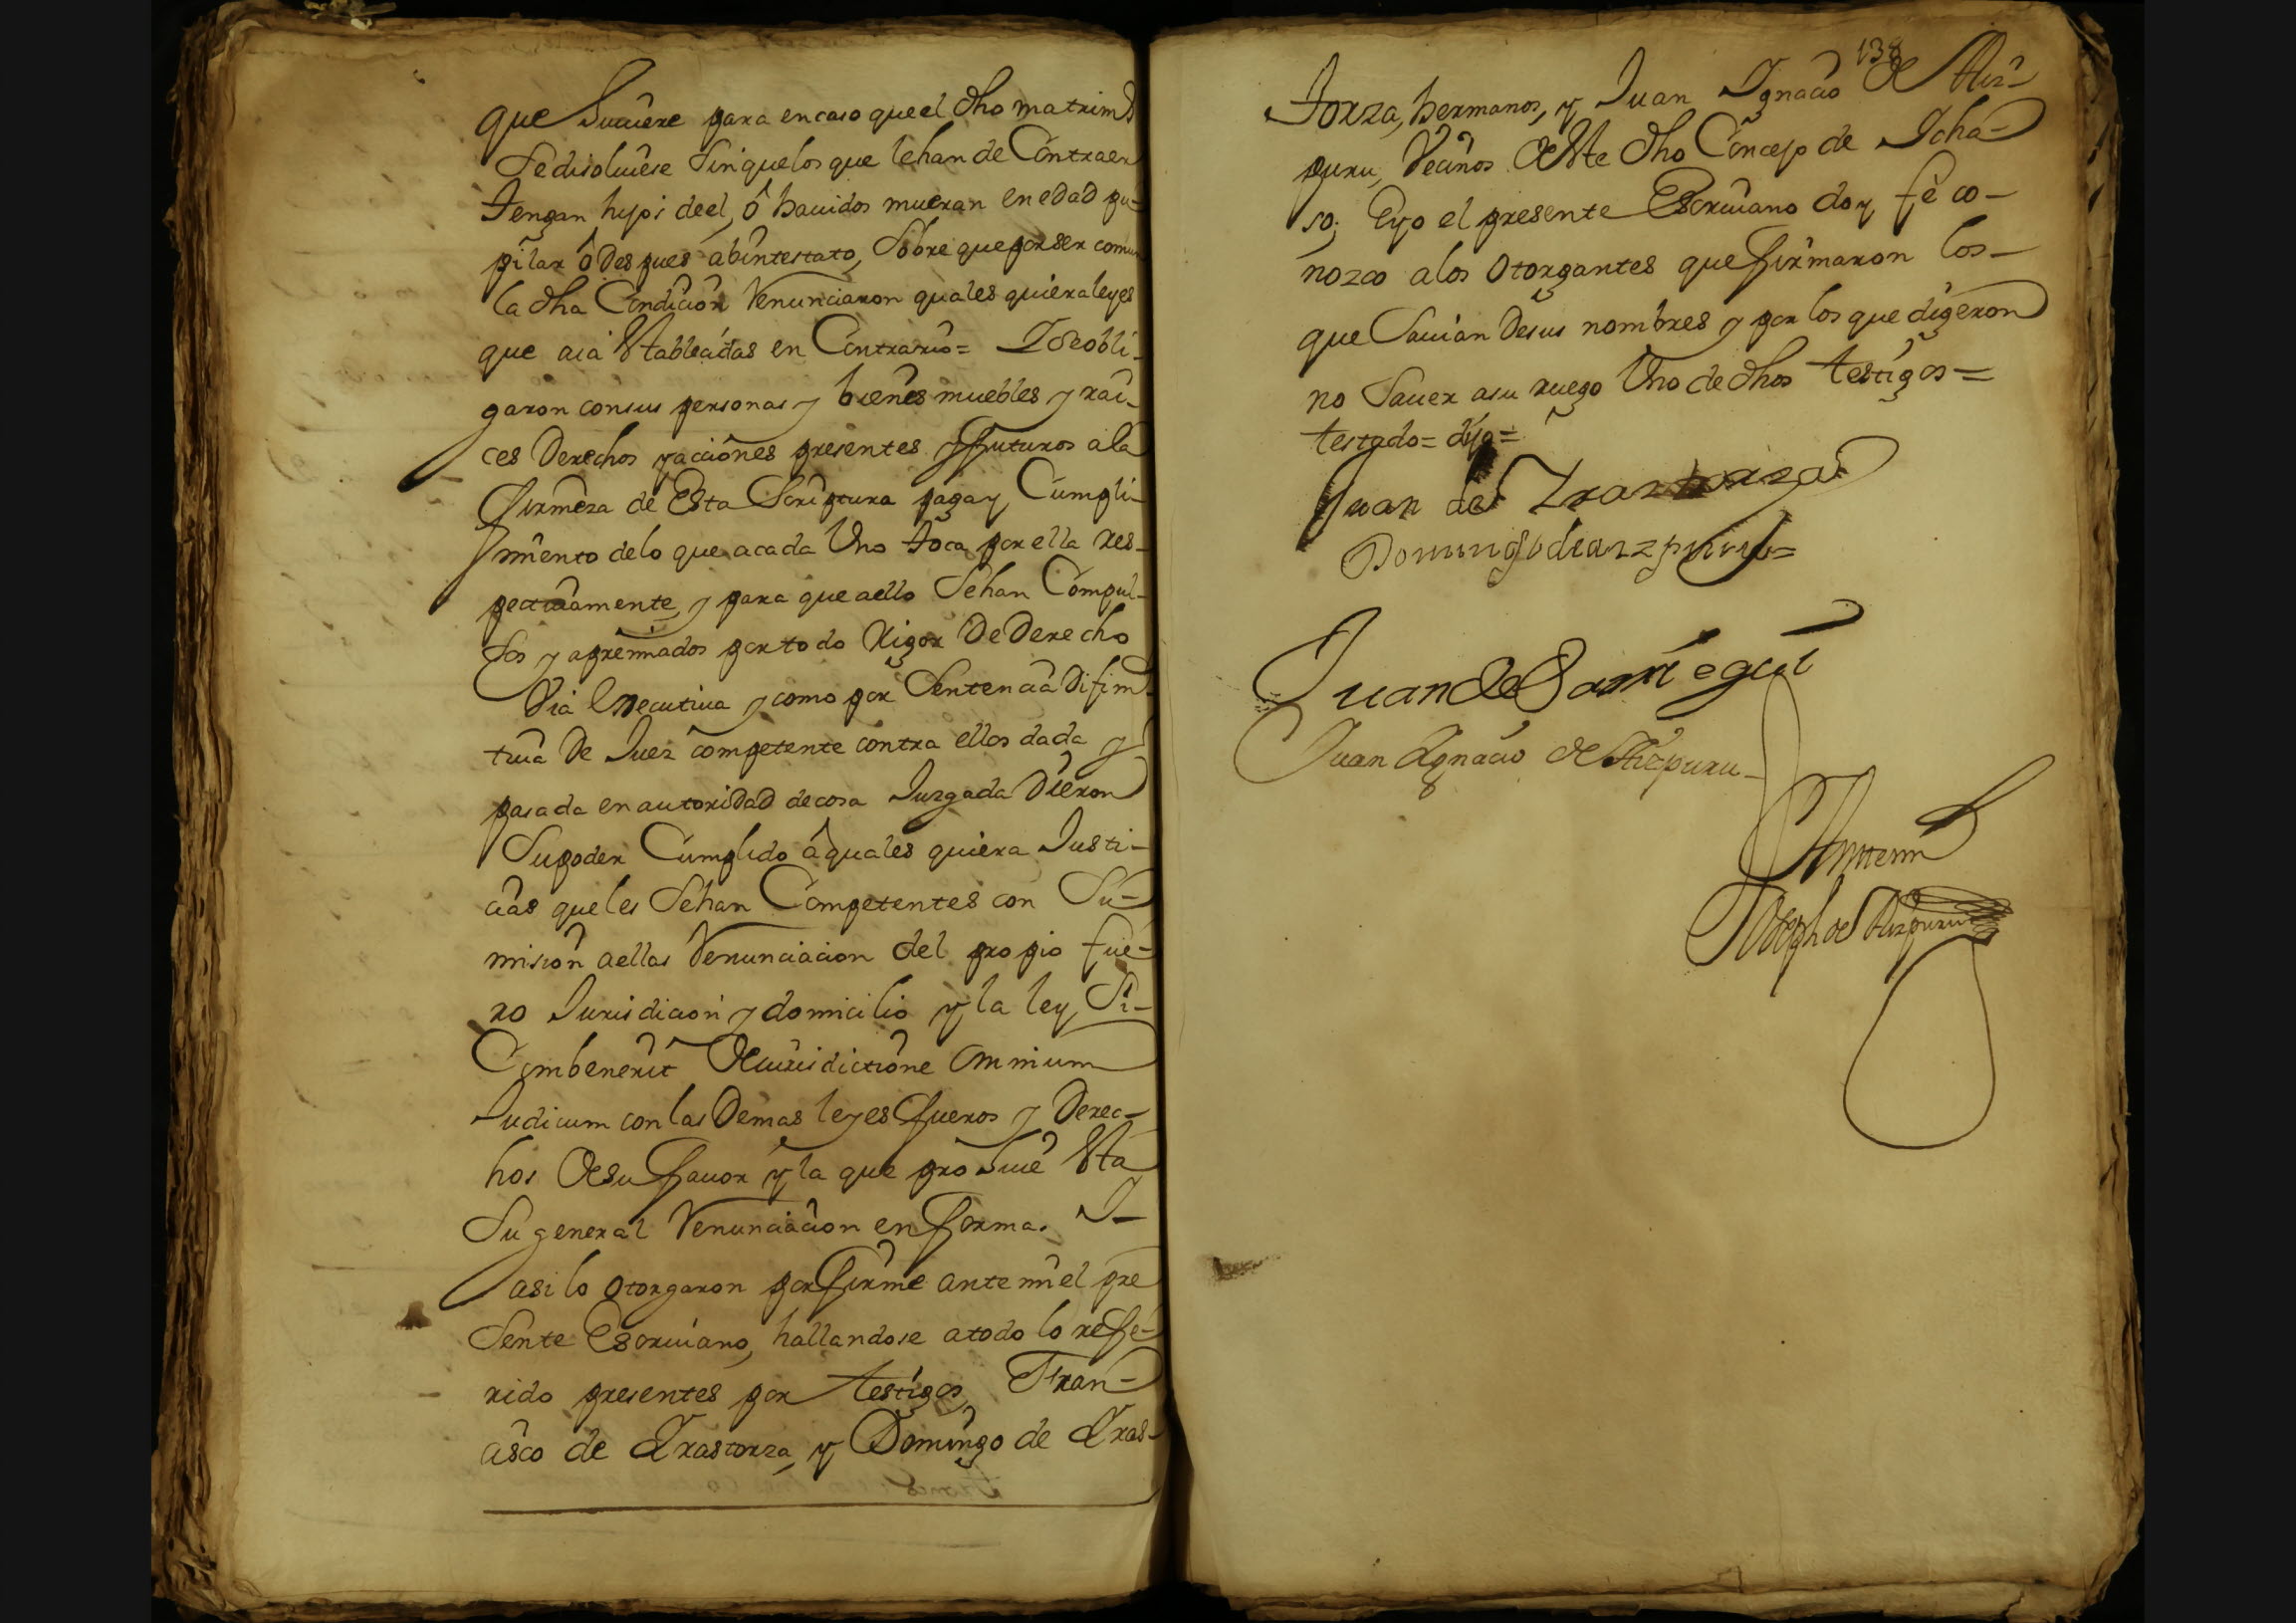 que Suçuiere para en caso que el dho matrimº
Se disoluiese Sin que los que lehan de Contraer
tengan hyos de el, ô hauidos mueran en edad pu-
pilar ô Des pues abintestato, Sobre que por ser comun
la dha Condiçion Renunciaron quales quiera leyes
que aia Establecidas en Contrario= I se obli-
garon con sus personas y bienes muebles y rai-
ces Derechos y acciones presentes y futuros a la
firmeza de Esta Scriptura paga y Cumpli-
miento de lo que a cada Vno toca por ella res-
pectiuamente, y para que aello Sehan Compul-
sos y apremiados por todo Rigor De Derecho
Via Executiua y como por Sentencia Difini-
tiua De Juez competente contra ellos dada y
pasada en autoridad de cosa Juzgada Dieron
Su poder Cumplido â quales quiera Justi-
cias que les Sehan Competentes con Su-
mision a ellas Renunciacion del propio fue-
ro Jurisdicion y domicilio y la ley Si-
Combenerit De Jurisdictione Omnium
Judicum con las Demas leyes fueros y Derec-
hos De su fauor y la que prohiue Esta
Su general Renunciacion en forma. I-
asi lo otorgaron por firme ante mi el pre
Sente Escriuano, hallandose a todo lo refe-
rido presentes por testigos, Fran-
cisco de Irastorza, y Domingo de Iras-
138
torza, hermanos, y Juan Ignacio de Aiz-
puru, Vecinos De Este dho Concejo de Icha-
so; E yo el presente Escriuano doy fê co-
nozco a los Otorgantes que firmaron los-
que Sauian De sus nombres y por los que digeron
no Sauer a su ruego Vno de dhos testigos=
testado= dijo=
Juan de Irastorza
Domingo de aizpuru=
Juan De Sarriegui
Juan Ignacio de Aizpuru-
Ante mi
Joseph de Aizpuru